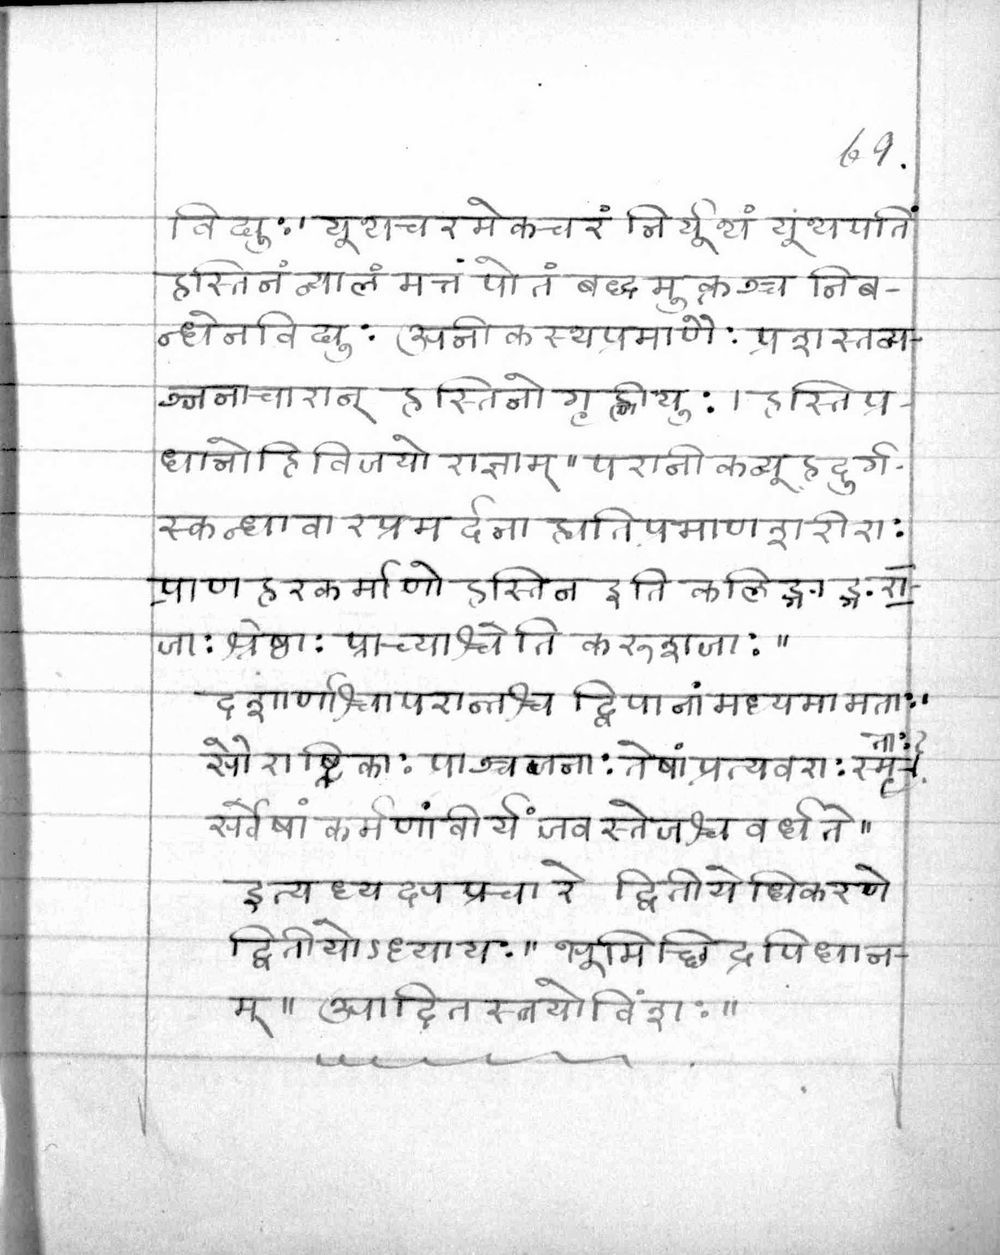 69.
विद्युः।' यूथचरमेकचरं निर्यूथं यूंथपतिं
हस्तिनं व्यालं मत्तं पोतं बद्धमुक्तञ्च निब-
न्धेनविद्युः अनीकस्थप्रमाणैः प्रशस्तव्य-
ञ्जनाचारान् हस्तिनोगृह्णीयुः। हस्तिप्र-
धानोहिविजयो राज्ञाम्॥ परानीकव्यूहदुर्ग-
स्कन्धावारप्रमर्दना ह्यतिप्रमाणशरीराः
प्राणहरकर्माणो हस्तिन इति कलिङ्गाङ्गरा-
जाः श्रेष्ठाः प्राच्याश्चेति करूशजाः॥
दशार्णाश्चापरान्तश्च द्विपानांमध्यमामताः।
सौराष्ट्रिकाः पाञ्चजनाः तेषांप्रत्यवराः स्मृताः
सर्वेषां कर्मणांवीर्यं जवस्तेजश्च वर्धते॥
इत्यध्यक्षप्रचारे द्वितीयेधिकरणे
द्वितीयोऽध्यायः॥ भूमिच्छिद्रपिधान-
म्॥ आदितस्त्रयोविंशः॥